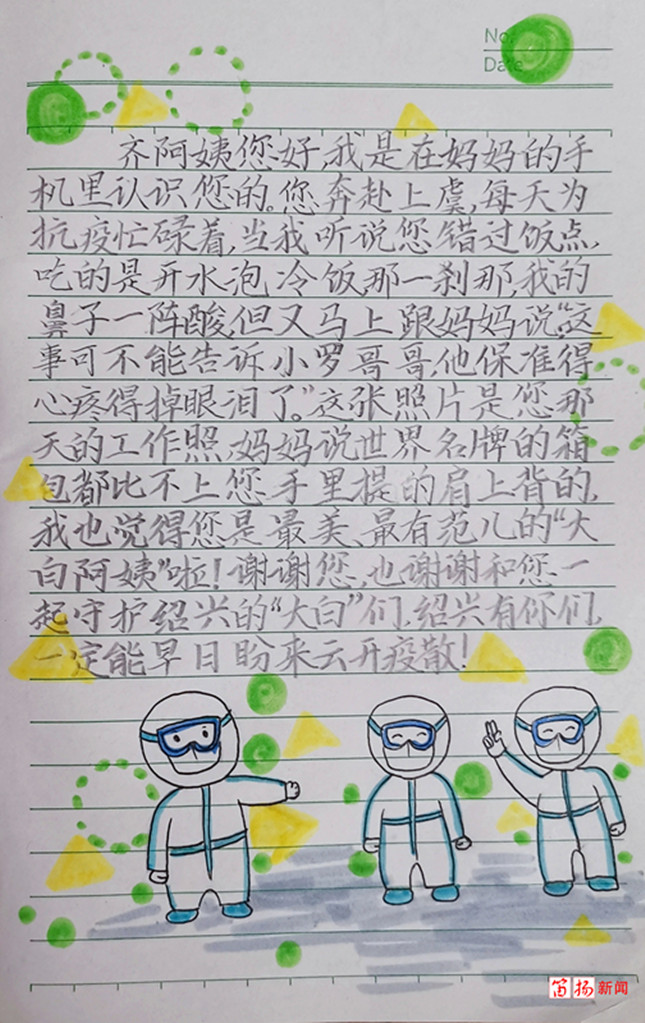 No.
Date
齐阿姨您好,我是在妈妈的手
机里认识您的。您奔赴上虞,每天为
抗疫忙碌着,当我听说您错过饭点,
吃的是开水泡冷饭,那一刹那,我的
鼻子一阵酸,但又马上跟妈妈说:“这
事可不能告诉小罗哥哥,他保准得
心疼得掉眼泪了。”这张照片是您那
天的工作照,妈妈说世界名牌的箱
包都比不上您手里提的肩上背的,
我也觉得您是最美、最有范儿的“大
白阿姨”啦!谢谢您,也谢谢和您一
起守护绍兴的“大白”们,绍兴有你们,
一定能早日盼来云开疫散!
笛扬新闻